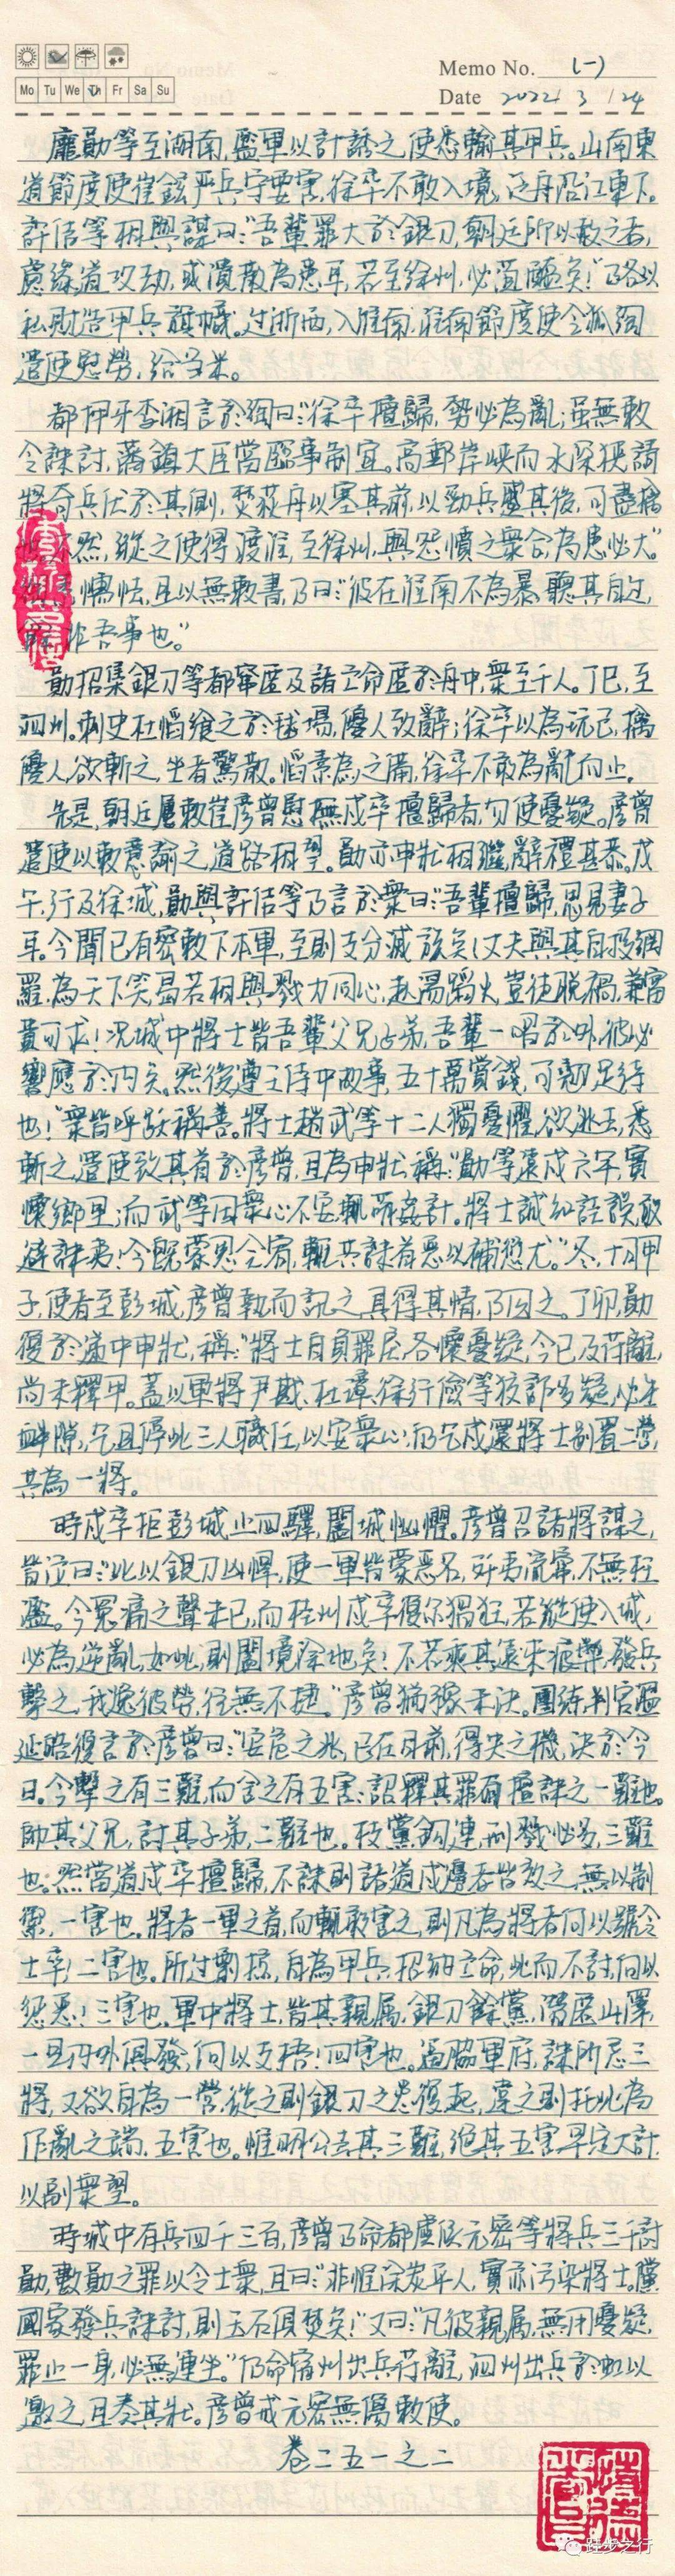 Memo No. (一)
Mo Tu We Th Fr Sa Su
Date 2022/3/24
龐勛等至湖南,監軍以計誘之,使悉輸其甲兵。山南東
道節度使崔鉉嚴兵守要害,徐卒不敢入境,泛舟沿江東下。
許佶等相與謀曰:“吾輩罪大於銀刀,朝廷所以赦之者,
慮緣道攻劫,或潰散為患耳,若至徐州,必菹醢矣!”乃各以
私財造甲兵旗幟。過浙西,入淮南,淮南節度使令狐綯
遣使慰勞,給芻米。
都押牙李湘言於綯曰:“徐卒擅歸,勢必為亂;雖無敕
令誅討,藩鎮大臣當臨事制宜。高郵岸峽而水深狹,請
將奇兵伏於其側,焚荻舟以塞其前,以勁兵蹙其後,可盡擒
不然,縱之使得渡淮,至徐州,與怨憤之衆合,為患必大。”
懦怯,且以無敕書,乃曰:“彼在淮南不為暴,聽其自過,
非吾事也。”
勛招集銀刀等都竄匿及諸亡命匿於舟中,衆至千人。丁巳,至
泗州。刺史杜慆饗之於毬場,優人致辭;徐卒以為玩己,擒
優人,欲斬之,坐者驚散。慆素為之備,徐卒不敢為亂而止。
先是,朝廷屢敕崔彥曾慰撫戍卒擅歸者,勿使憂疑。彥曾
遣使以敕意諭之,道路相望。勛亦申狀相繼,辭禮甚恭。戊
午,行及徐城,勛與許佶等乃言於衆曰:“吾輩擅歸,思見妻子
耳。今聞已有密敕下本軍,至則支分滅族矣!丈夫與其自投網
羅,為天下笑,曷若相與戮力同心,赴湯蹈火,豈徒脱禍,兼富
貴可求!況城中將士皆吾輩父兄子弟,吾輩一唱於外,彼必
響應於内矣。然後遵王侍中故事,五十萬賞錢,可翹足待
也!”衆皆呼躍稱善。將士趙武等十二人獨憂懼,欲逃去,悉
斬之,遣使致其首於彥曾,且為申狀,稱:“勛等遠戍六年,實
懷鄉里;而武等因衆心不安,輒萌姦計。將士誠知詿誤,敢
避誅夷!今既蒙恩全宥,輒共誅首惡以補愆尤。”冬,十月甲
子,使者至彭城,彥曾執而訊之,具得其情,乃囚之。丁卯,勛
復於遞中申狀,稱:“將士自負罪戾,各懷憂疑,今已及苻離,
尚未釋甲。蓋以軍將尹戡、杜璋、徐行儉等狡詐多疑,必生
釁隙,乞且停此三人職任,以安衆心,仍乞戍還將士別置二營,
共為一將。
時戍卒拒彭城止四驛,闔城恟懼。彥曾召諸將謀之,
皆泣曰:“比以銀刀凶悍,使一軍皆蒙惡名,歼夷流竄,不無枉
濫。今冤痛之聲未已,而桂州戍卒復尔猖狂,若縱使入城,
必為逆亂,如此,則闔境塗地矣!不若乘其遠來疲弊,發兵
擊之,我逸彼勞,往無不捷。”彥曾猶豫未決。團練判官溫
延皓復言於彥曾曰:“安危之兆,已在目前,得失之機,決於今
日。今擊之有三難,而舍之有五害:詔釋其罪而擅誅之,一難也。
帥其父兄,討其子弟,二難也。枝黨鉤連,刑戮必多,三難
也。然當道戍卒擅歸,不誅則諸道戍邊者皆效之,無以制
禦,一害也。將者一軍之首,而輒敢害之,則凡為將者何以號令
士卒!二害也。所過剽掠,自為甲兵,招納亡命,此而不討,何以
懲惡!三害也。軍中將士,皆其親属,銀刀餘黨,潛匿山澤,
一旦内外俱發,何以支梧!四害也。逼脇軍府,誅所忌三
將,又欲自為一營,從之則銀刀之患復起,違之則托此為
作亂之端,五害也。惟明公去其三難,絕其五害,早定大計,
以副衆望。
時城中有兵四千三百,彥曾乃命都虞候元密等將兵三千討
勛,數勛之罪以令士衆,且曰:“非惟塗炭平人,實亦污染將士。儻
國家發兵誅討,則玉石俱焚矣!”又曰:“凡彼親属,無用憂疑,
罪止一身,必無連坐。”仍命宿州出兵苻離,泗州出兵於虹以
邀之,且奏其狀。彥曾戒元密無傷敕使。
卷二五一之二
跬步之行